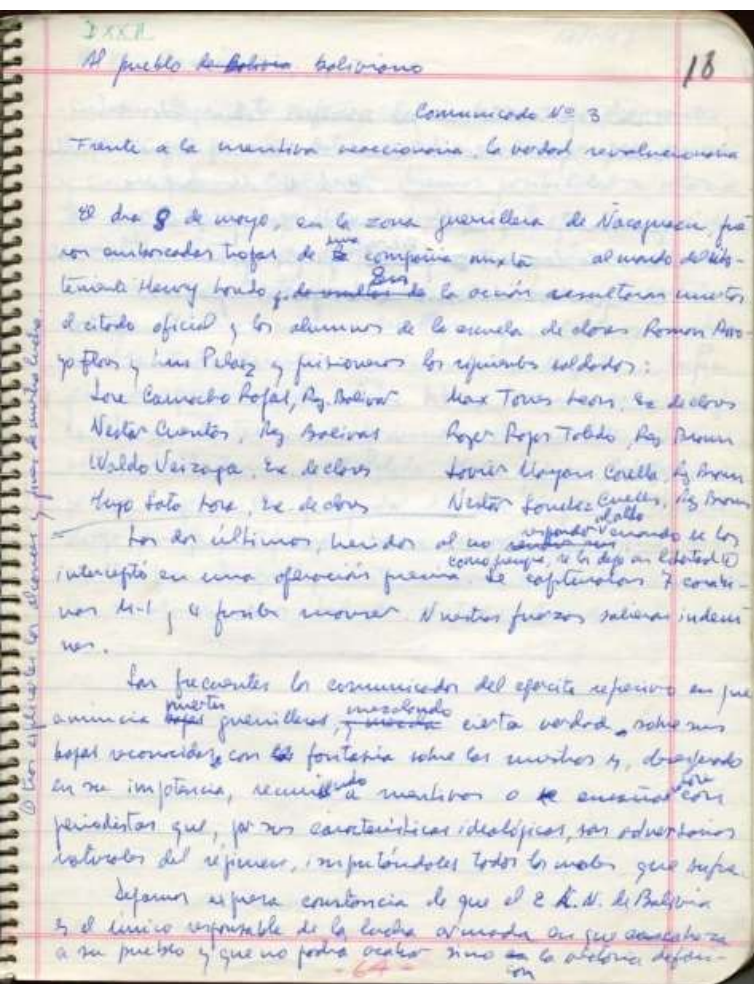 DXXII
Al pueblo de Bolivia boliviano
18
Comunicado Nº 3
Frente a la mentira reaccionaria, la verdad revolucionaria
El día 8 de mayo, en la zona guerrillera de Ñacaguasu, fue
ron emboscadas tropas de una compañia mixta al mando del subte-
teniente Henry Laredo y de resultas de En la acción resultaron muertos
el citado oficial y los alumnos de la escuela de clases Roman Arro-
yo Flores y Luis Pelaez y prisioneros los siguientes soldados:
José Camacho Rojas, Reg. Bolivar Max Torres Leon, Es. de clases
Nestor Cuentas, Reg Bolivar Roger Rojas Toledo, Reg Braun
Waldo Veizaga, Es. de clases Javier Mayan Corella, Reg Braun
Hugo Soto Lora, Es. de clases Nestor Sanchez Cuellar, Reg Braun
- Los dos últimos, heridos al no responder al alto cuando se los
como siempre, se los dejó en libertad ①
interceptó en una operación previa. Se capturaron 7 carabi-
nas M-1 y 4 fusiles mauser. Nuestras fuerzas salieron indem
nes.
Son frecuentes los comunicados del ejercito represivo en que
anuncia bajas muertes guerrilleras, y mezcla mezclando cierta verdad sobre sus
bajas reconocidas con la fantasia sobre las nuestras y, desesperado
en su impotencia, recurriendo a mentiras o se ensañarse con
periodistas que, por sus características ideológicas, son adversarios
naturales del régimen, imputándoles todos los males que sufre.
Dejamos expresa constancia de que el E.L.N. de Bolivia
es el único responsable de la lucha armada en que encabeza
a su pueblo y que no podrá acabar sino en con la victoria defini-
-64-
① tras explicarles los alcances y fines de nuestra lucha.